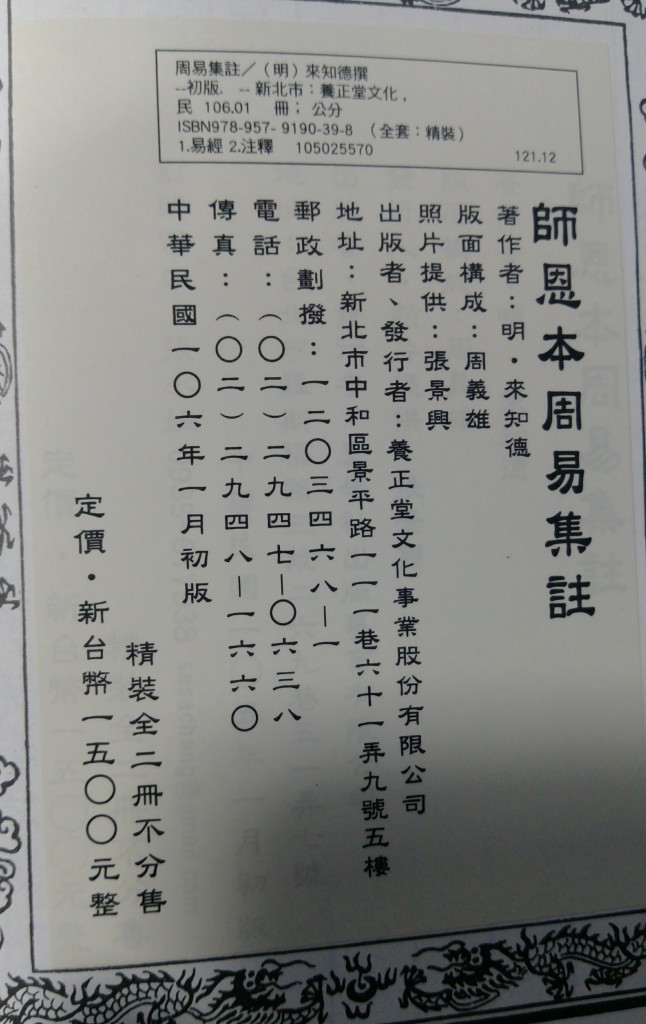 周易集註／（明）來知德撰
--初版. -- 新北市：養正堂文化，
民 106.01 冊；公分
ISBN978-957- 9190-39-8 （全套：精裝）
1.易經 2.注釋 105025570
121.12
師恩本周易集註
著作者：明・來知德
版面構成：周義雄
照片提供：張景興
出版者、發行者：養正堂文化事業股份有限公司
地址：新北市中和區景平路一一一巷六十一弄九號五樓
郵政劃撥：一二〇三四六八—一
電話：（〇二）二九四七—〇六三八
傳真：（〇二）二九四八—一六六〇
中華民國一〇六年一月初版
精裝全二冊不分售
定價・新台幣一五〇〇元整